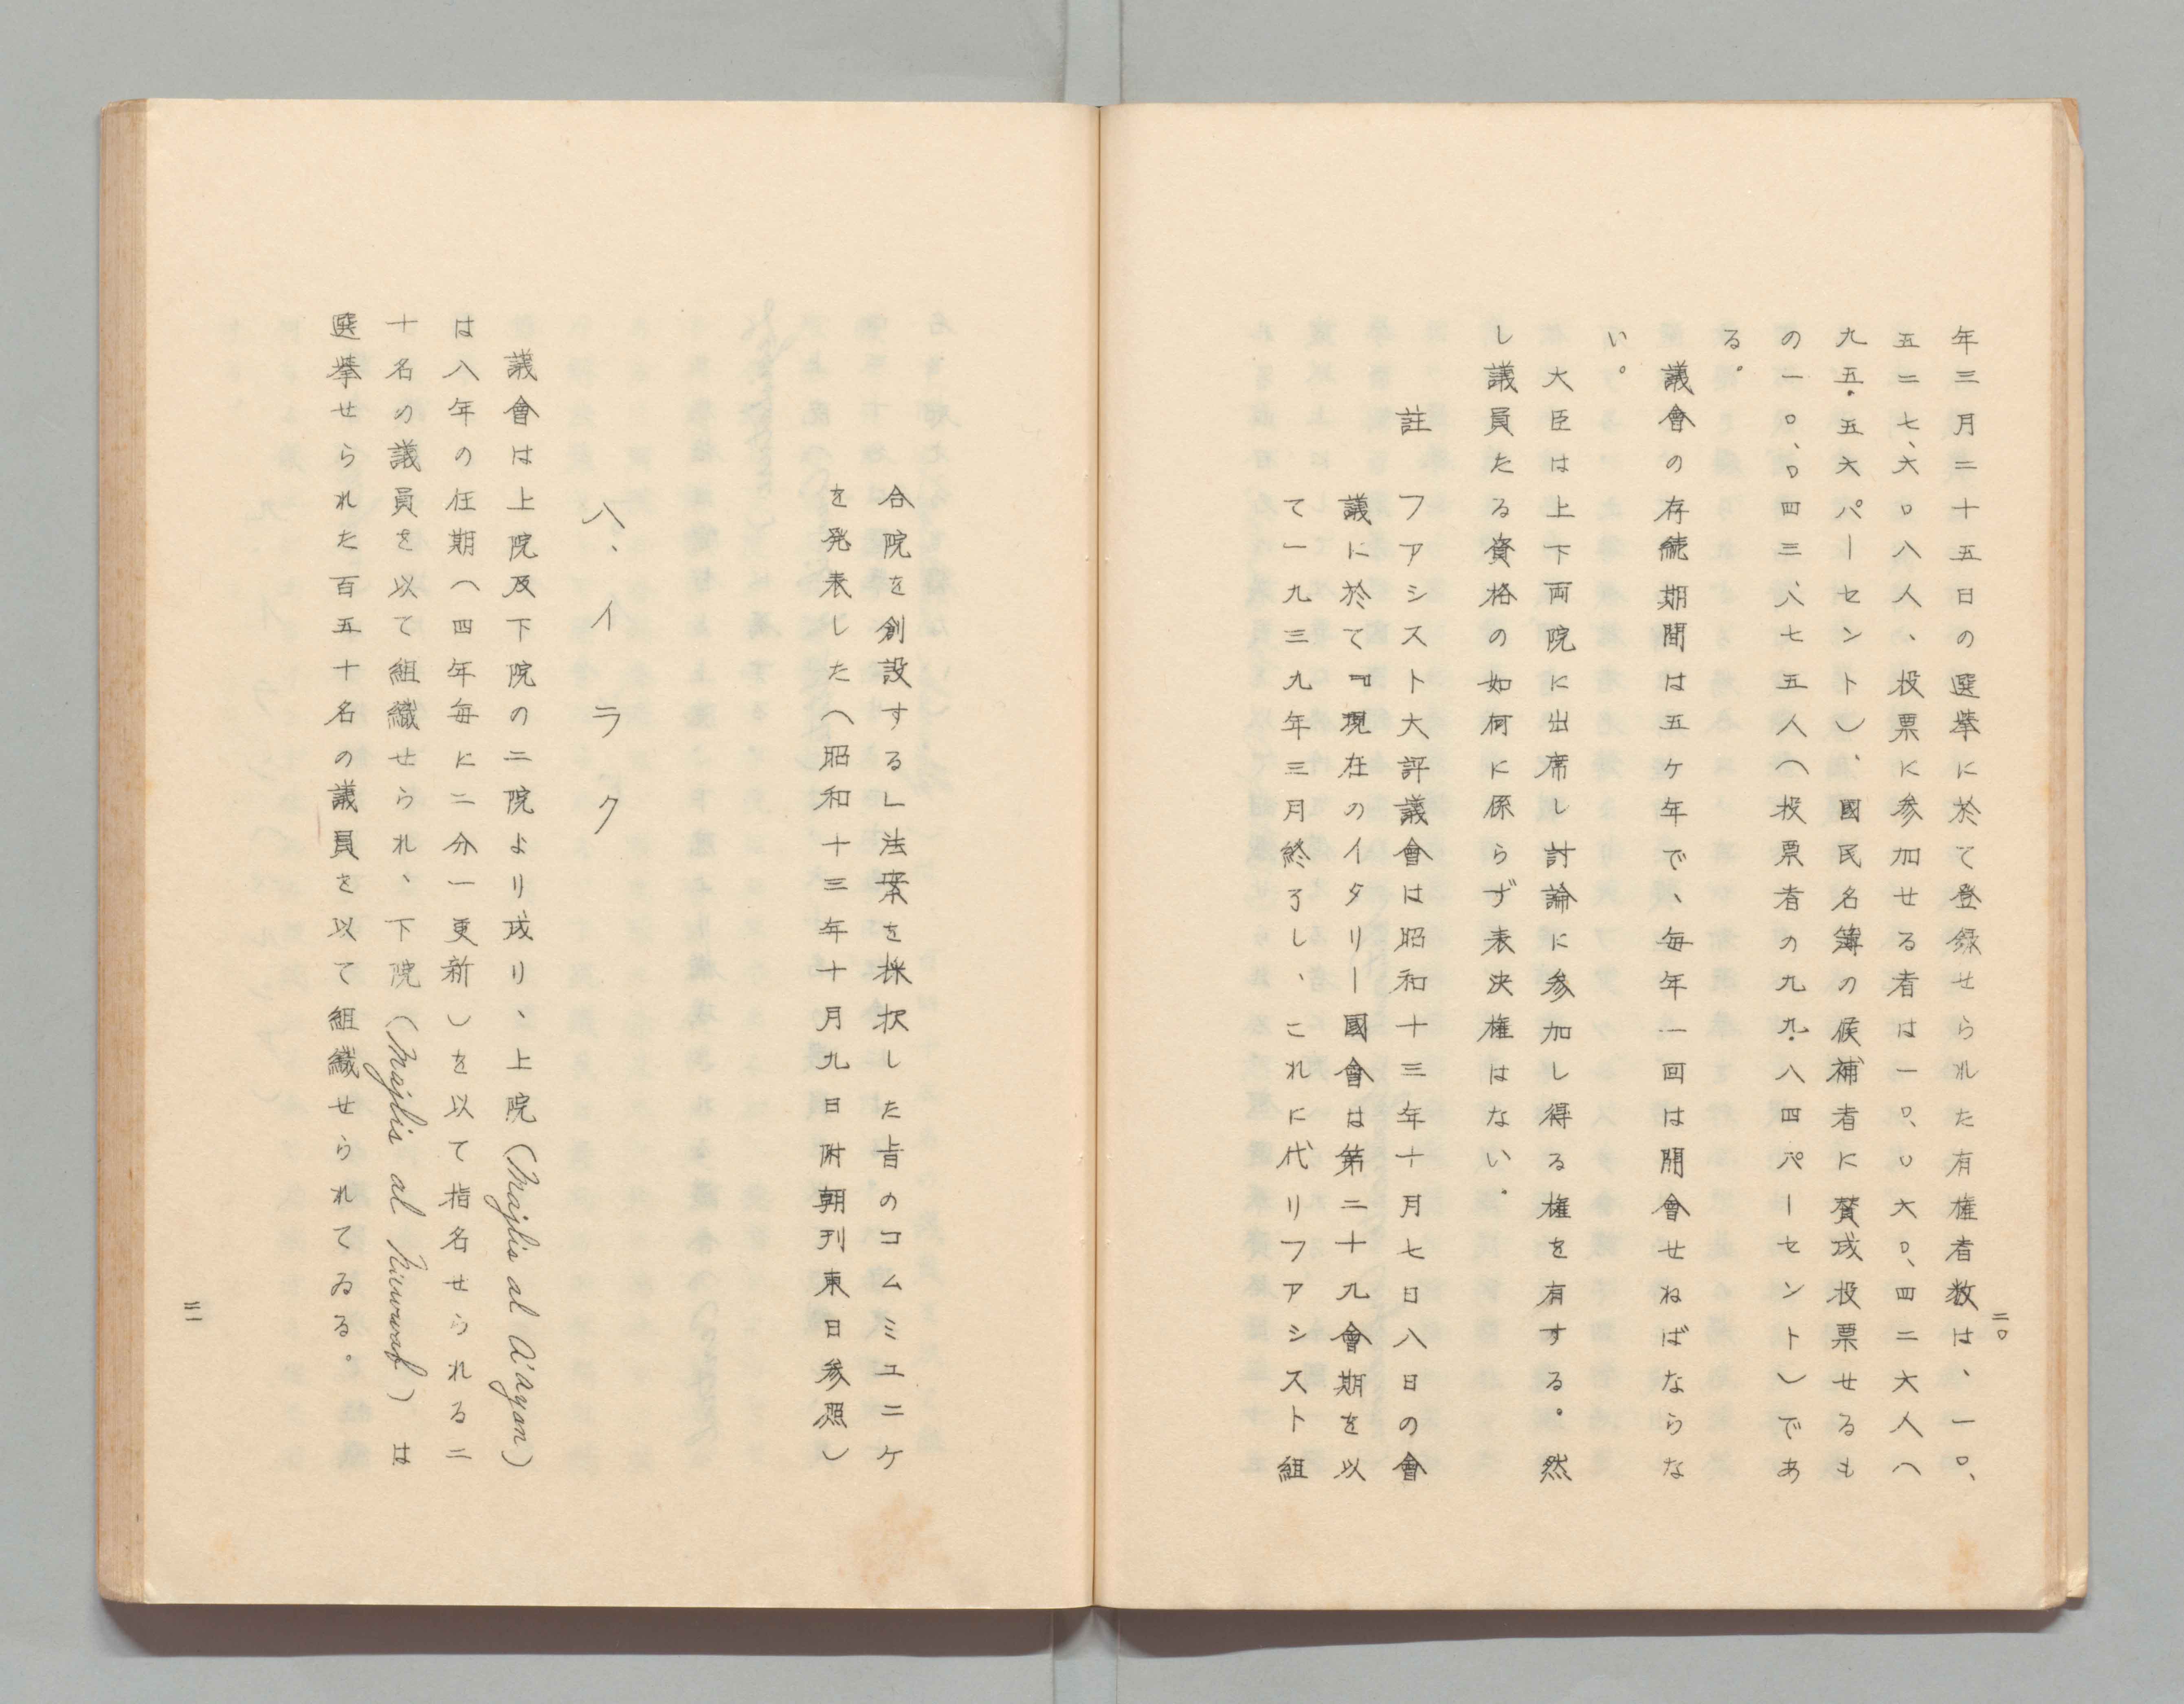 年三月二十五日の選挙に於て登録せられた有権者数は、一〇、
五二七、六〇八人、投票に参加せる者は一〇、〇六〇、四二六人(
九五・五六パーセント)、國民名簿の候補者に賛成投票せるも
の一〇、〇四三、八七五人(投票者の九九・八四パーセント)であ
る。
議會の存続期間は五ケ年で、毎年一回は開會せねばならな
い。
大臣は上下両院に出席し討論に参加し得る権を有する。然
し議員たる資格の如何に係らず表決権はない。
註 フアシスト大評議會は昭和十三年十月七日八日の會
議に於て『現在のイタリー國會は第二十九會期を以
て一九三九年三月終了し、これに代リフアシスト組
二〇
合院を創設する」法案を採択した旨のコムミユニケ
を発表した(昭和十三年十月九日附朝刊東日参照)
八、イラク
議會は上院及下院の二院より成り、上院(Majlis al A'ayan)
は八年の任期(四年毎に二分一更新)を以て指名せられる二
十名の議員を以て組織せられ、下院(Majlis al Nuwwab)は
選挙せられた百五十名の議員を以て組織せられてゐる。
二一